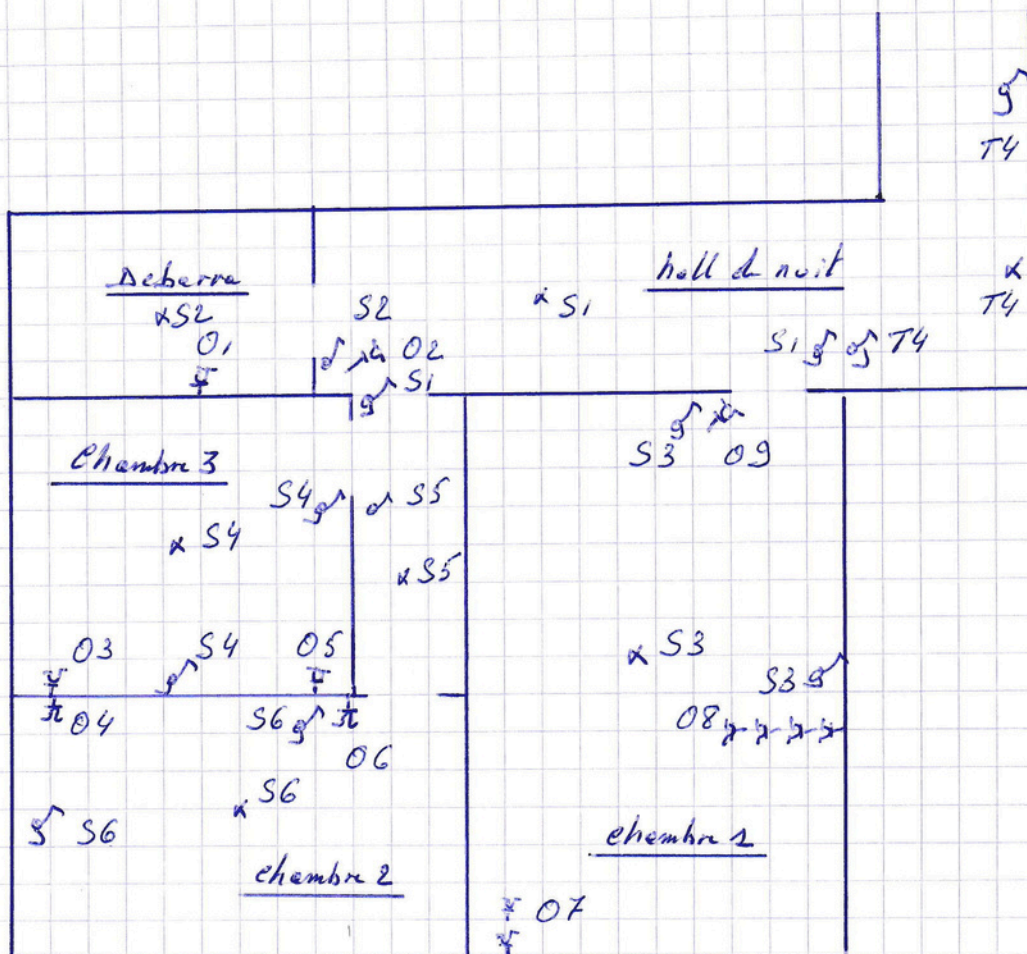 T4
Debarra
hall d nuit
S2
S2
S1
T4
O1
O2
S1
T4
S1
S3
O9
Chambre 3
S4
S5
S4
S5
O3
S4
O5
S3
S3
O4
S6
O8
O6
S6
S6
chambre 1
chambre 2
O7